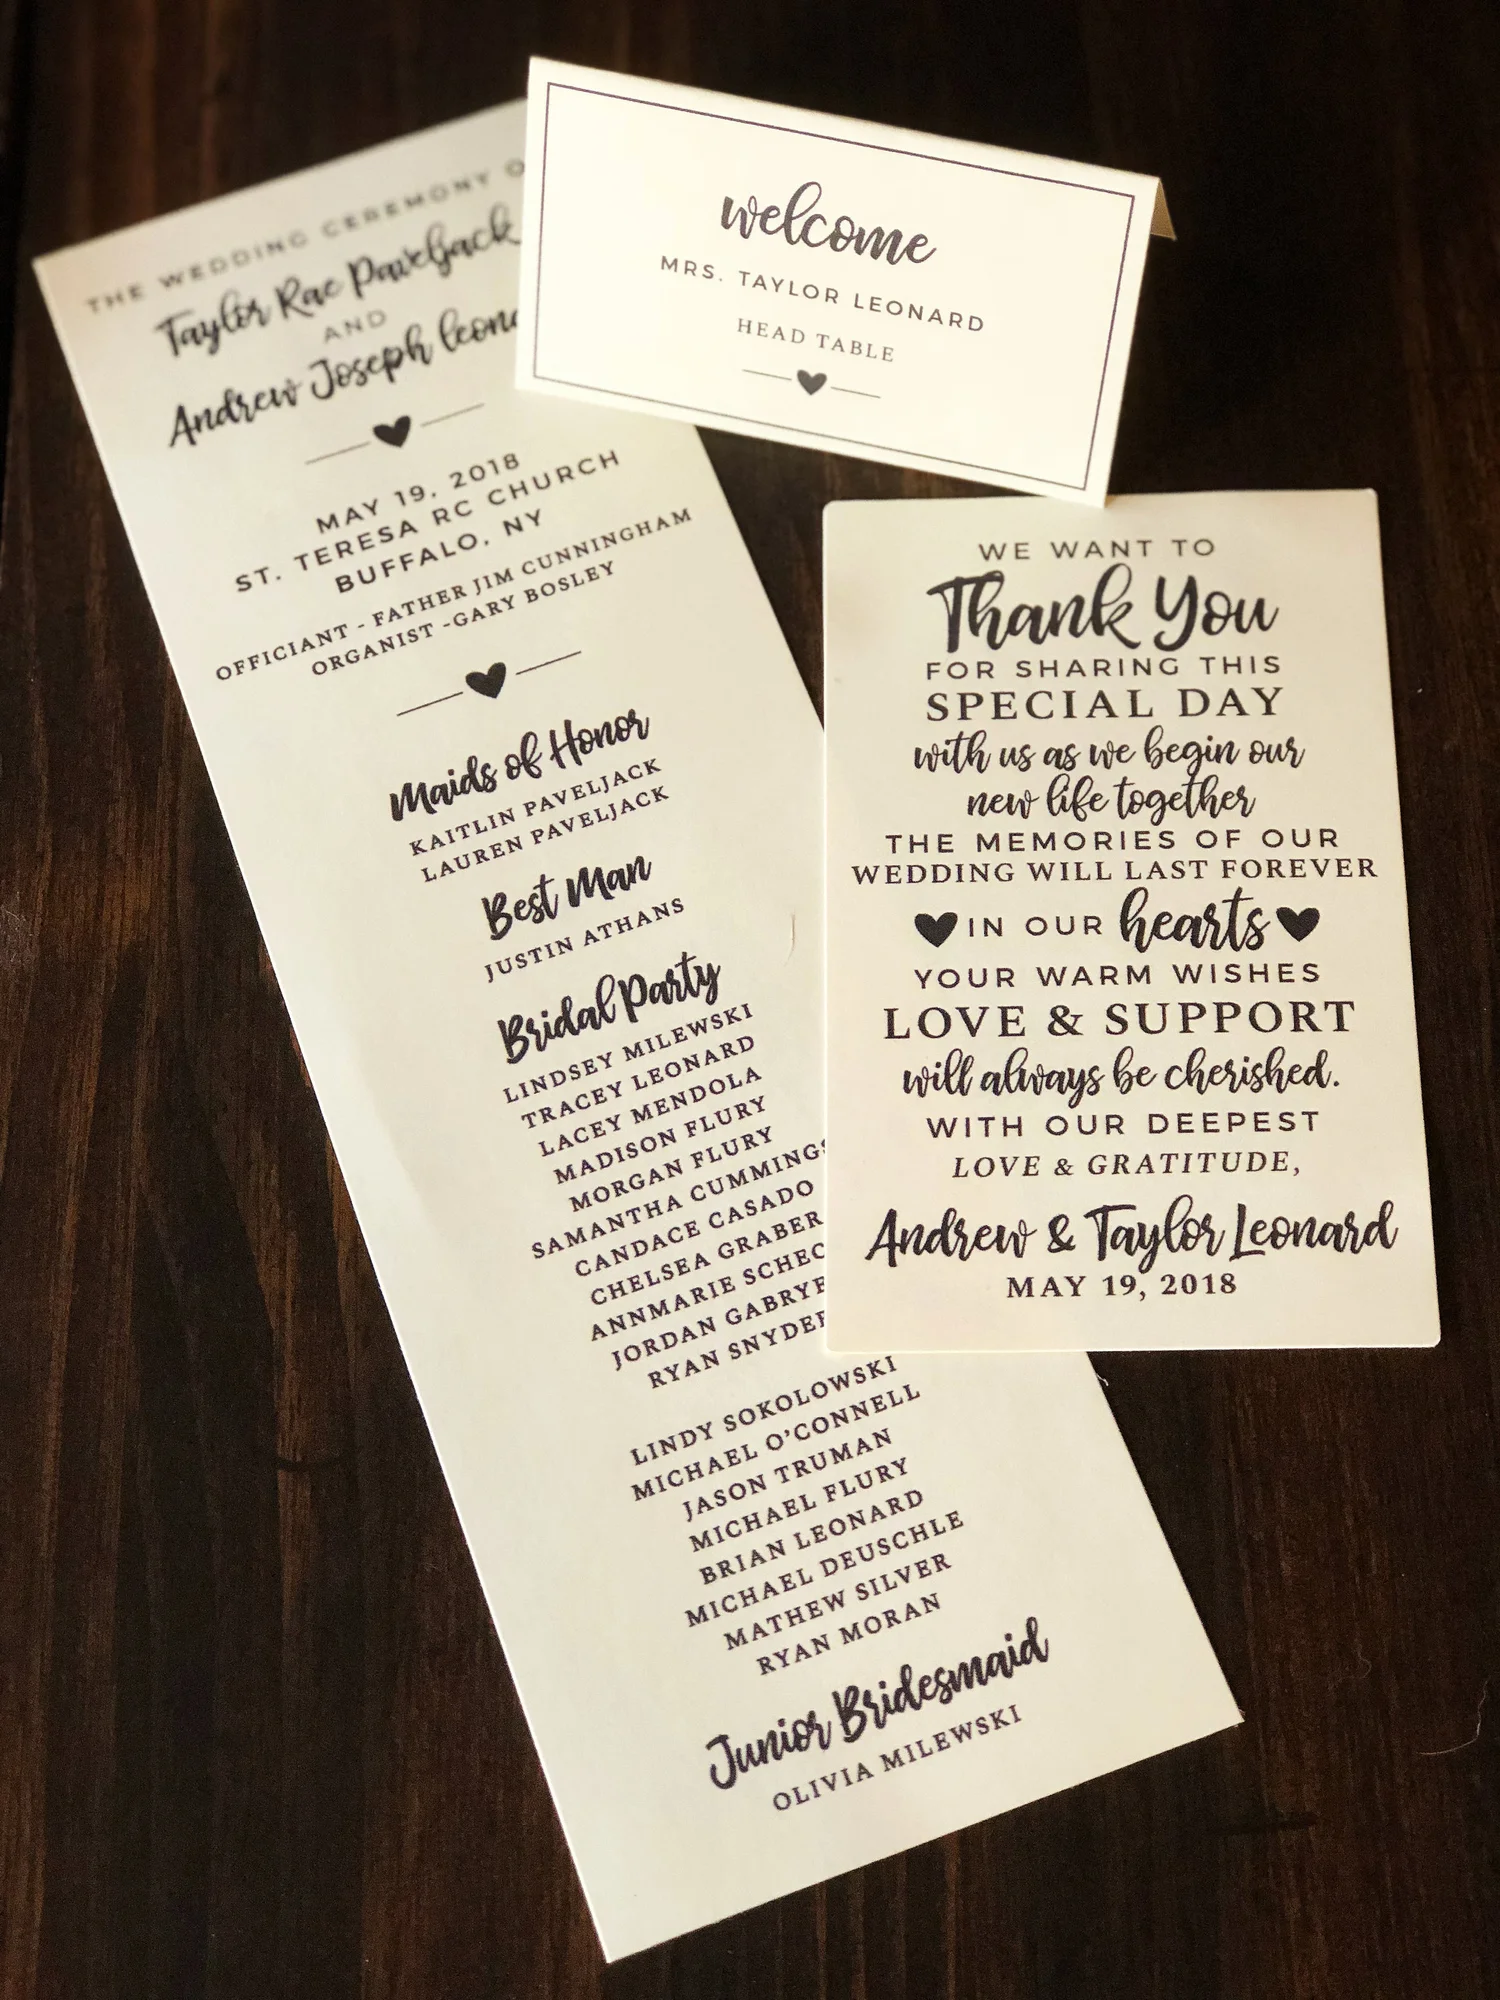 THE WEDDING CEREMONY
Taylor Rae Paveljack
AND
Andrew Joseph
MAY 19, 2018
ST. TERESA RC CHURCH
BUFFALO, NY
OFFICIANT - FATHER JIM CUNNINGHAM
ORGANIST -GARY BOSLEY
Maids of Honor
KAITLIN PAVELJACK
LAUREN PAVELJACK
Best Man
JUSTIN ATHANS
Bridal Party
LINDSEY MILEWSKI
TRACEY LEONARD
LACEY MENDOLA
MADISON FLURY
MORGAN FLURY
SAMANTHA CUMMINGS
CANDACE CASADO
CHELSEA GRABER
ANNMARIE
JORDAN
RYAN SNYDER
LINDY SOKOLOWSKI
MICHAEL O'CONNELL
JASON TRUMAN
MICHAEL FLURY
BRIAN LEONARD
MICHAEL DEUSCHLE
MATHEW SILVER
RYAN MORAN
Junior Bridesmaid
OLIVIA MILEWSKI
welcome
MRS. TAYLOR LEONARD
HEAD TABLE
WE WANT TO
Thank You
FOR SHARING THIS
SPECIAL DAY
with us as we begin our
new life together
THE MEMORIES OF OUR
WEDDING WILL LAST FOREVER
IN OUR hearts
YOUR WARM WISHES
LOVE & SUPPORT
will always be cherished.
WITH OUR DEEPEST
LOVE & GRATITUDE,
Andrew & Taylor Leonard
MAY 19, 2018